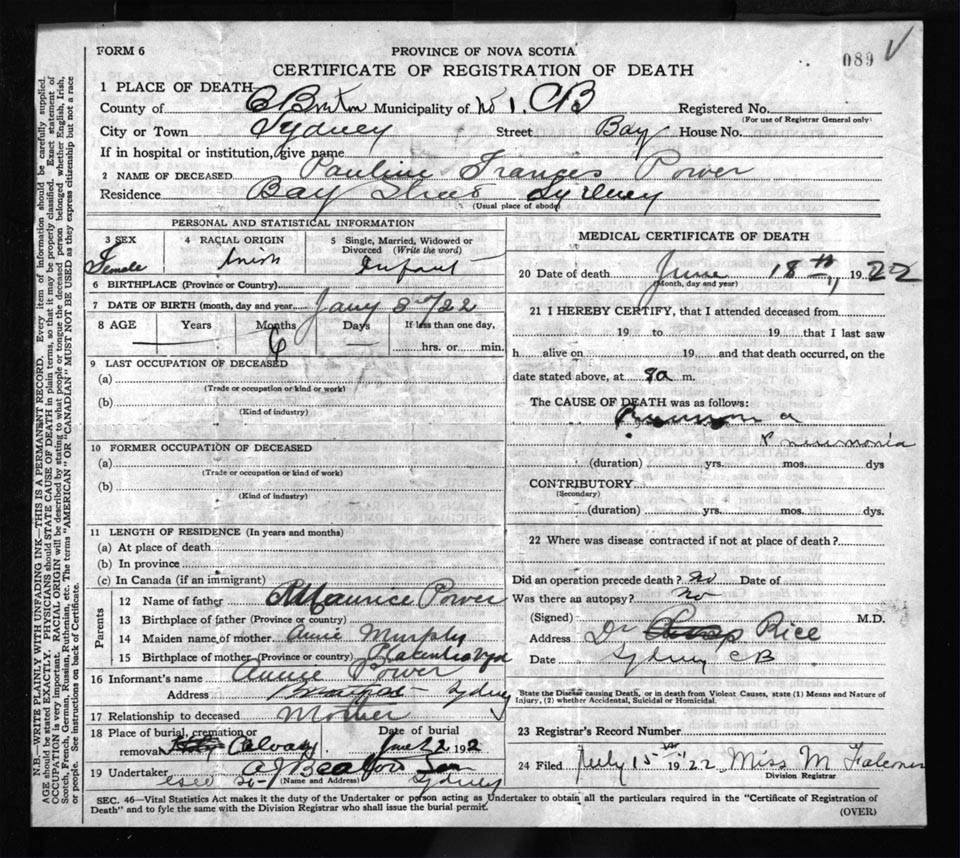 FORM 6
PROVINCE OF NOVA SCOTIA
089
CERTIFICATE OF REGISTRATION OF DEATH
1 PLACE OF DEATH
County of C Breton Municipality of No 1. CB Registered No.
(For use of Registrar General only)
City or Town Sydney Street Bay House No.
If in hospital or institution, give name
2 NAME OF DECEASED Pauline Frances Power
Residence Bay Sydney
(Usual place of abode)
PERSONAL AND STATISTICAL INFORMATION
3 SEX 4 RACIAL ORIGIN 5 Single, Married, Widowed or Divorced (Write the word)
Female Irish Infant
6 BIRTHPLACE (Province or Country)
7 DATE OF BIRTH (month, day and year) Jany 3rd/22
8 AGE Years Months Days If less than one day,
6
hrs. or min.
9 LAST OCCUPATION OF DECEASED
(a)
(Trade or occupation or kind or work)
(b)
(Kind of industry)
10 FORMER OCCUPATION OF DECEASED
(a)
(Trade or occupation or kind of work)
(b)
(Kind of industry)
11 LENGTH OF RESIDENCE (In years and months)
(a) At place of death
(b) In province
(c) In Canada (if an immigrant)
Parents
12 Name of father Maurice Power
13 Birthplace of father (Province or country)
14 Maiden name of mother Annie Murphy
15 Birthplace of mother (Province or country)
16 Informant's name Annie Power
Address Sydney
17 Relationship to deceased Mother
18 Place of burial, cremation or Date of burial
removal Calvary 192
19 Undertaker A J Beaton Son
(Name and Address) Sydney
MEDICAL CERTIFICATE OF DEATH
20 Date of death June 18th, 1922
(Month, day and year)
21 I HEREBY CERTIFY, that I attended deceased from
19 to 19 that I last saw
h alive on 19 and that death occurred, on the
date stated above, at 9a m.
The CAUSE OF DEATH was as follows:
Pneumonia
(duration) yrs. mos. dys
CONTRIBUTORY
(Secondary)
(duration) yrs. mos. dys.
22 Where was disease contracted if not at place of death?
Did an operation precede death? No Date of
Was there an autopsy? No
(Signed) M.D.
Address Dr Rice
Date Sydney CB
State the Disease causing Death, or in death from Violent Causes, state (1) Means and Nature of
Injury, (2) whether Accidental, Suicidal or Homicidal.
23 Registrar's Record Number
24 Filed July 15th 1922 Miss M Falconer
Division Registrar
SEC. 46—Vital Statistics Act makes it the duty of the Undertaker or person acting as Undertaker to obtain all the particulars required in the "Certificate of Registration of
Death" and to fyle the same with the Division Registrar who shall issue the burial permit.
(OVER)
N.B.—WRITE PLAINLY WITH UNFADING INK—THIS IS A PERMANENT RECORD. Every item of information should be carefully supplied.
AGE should be stated EXACTLY. PHYSICIANS should STATE CAUSE OF DEATH in plain terms, so that it may be properly classified. Exact statement of
OCCUPATION is very important. RACIAL ORIGIN will be described by stating to what people or tongue the deceased person belonged whether English, Irish,
Scotch, French, German, Russian, Ruthenian, etc. The terms "AMERICAN" OR "CANADIAN" MUST NOT BE USED as they express citizenship but not a race
or people. See instructions on back of Certificate.